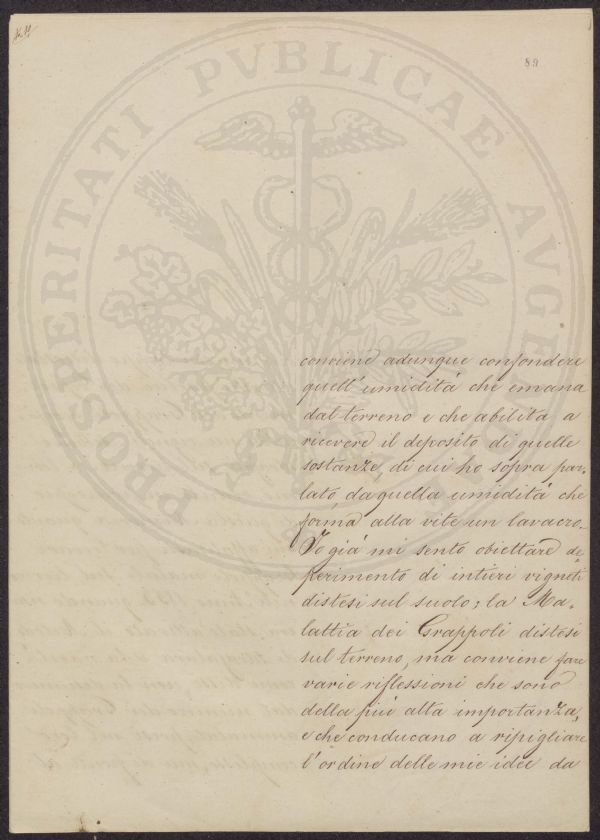 89
conviene adunque confondere
quell' umidità che emana
dal terreno e che abilita a
ricevere il deposito di quelle
sostanze, di cui ho sopra par-
lato da quella umidità che
forma alla vite un lavacro.
Io già mi sento obiettare de-
perimento di intieri vigneti
distesi sul suolo; la Ma-
lattia dei Grappoli distesi
sul terreno, ma conviene fare
varie riflessioni che sono
della più alta importanza,
e che conducano a ripigliare
l'ordine delle mie idee da
PROSPERITATI PVBLICAE AVGE